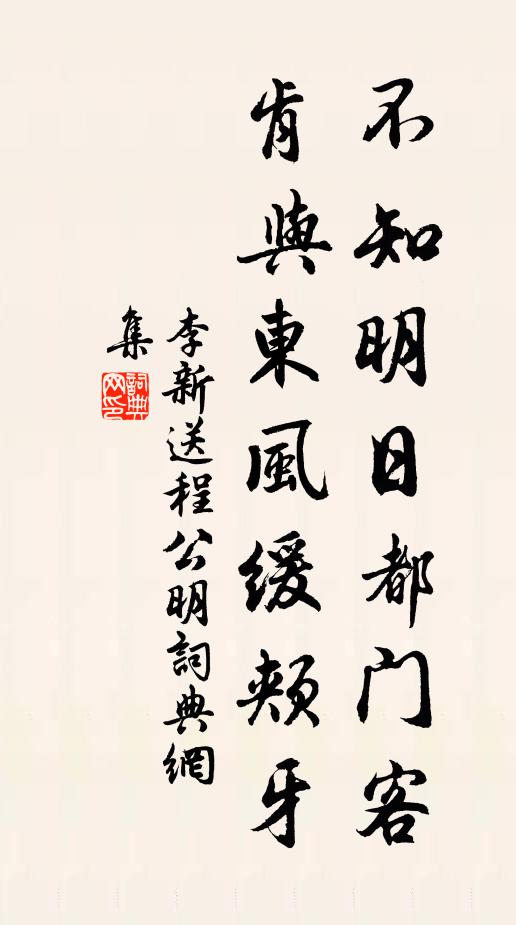 不知明日都門客
肯與東風緩頰牙
李新送程公明詞典網
集
詞典
网印